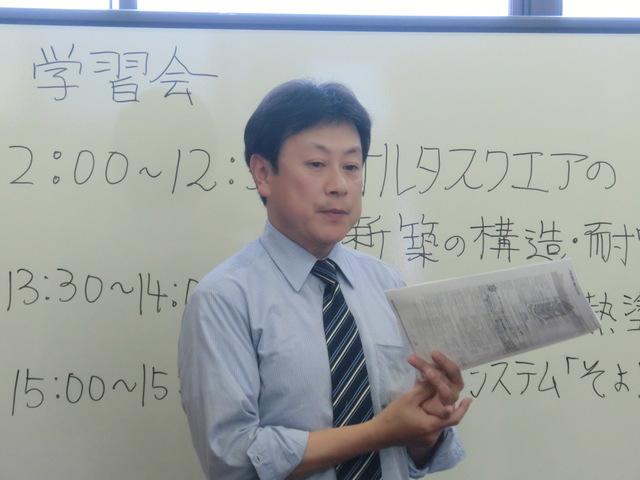 学習会
2:00~12: オルタスクエアの
新築の構造・耐
13:30~14:0 熱塗
15:00~15 ステム「そよ